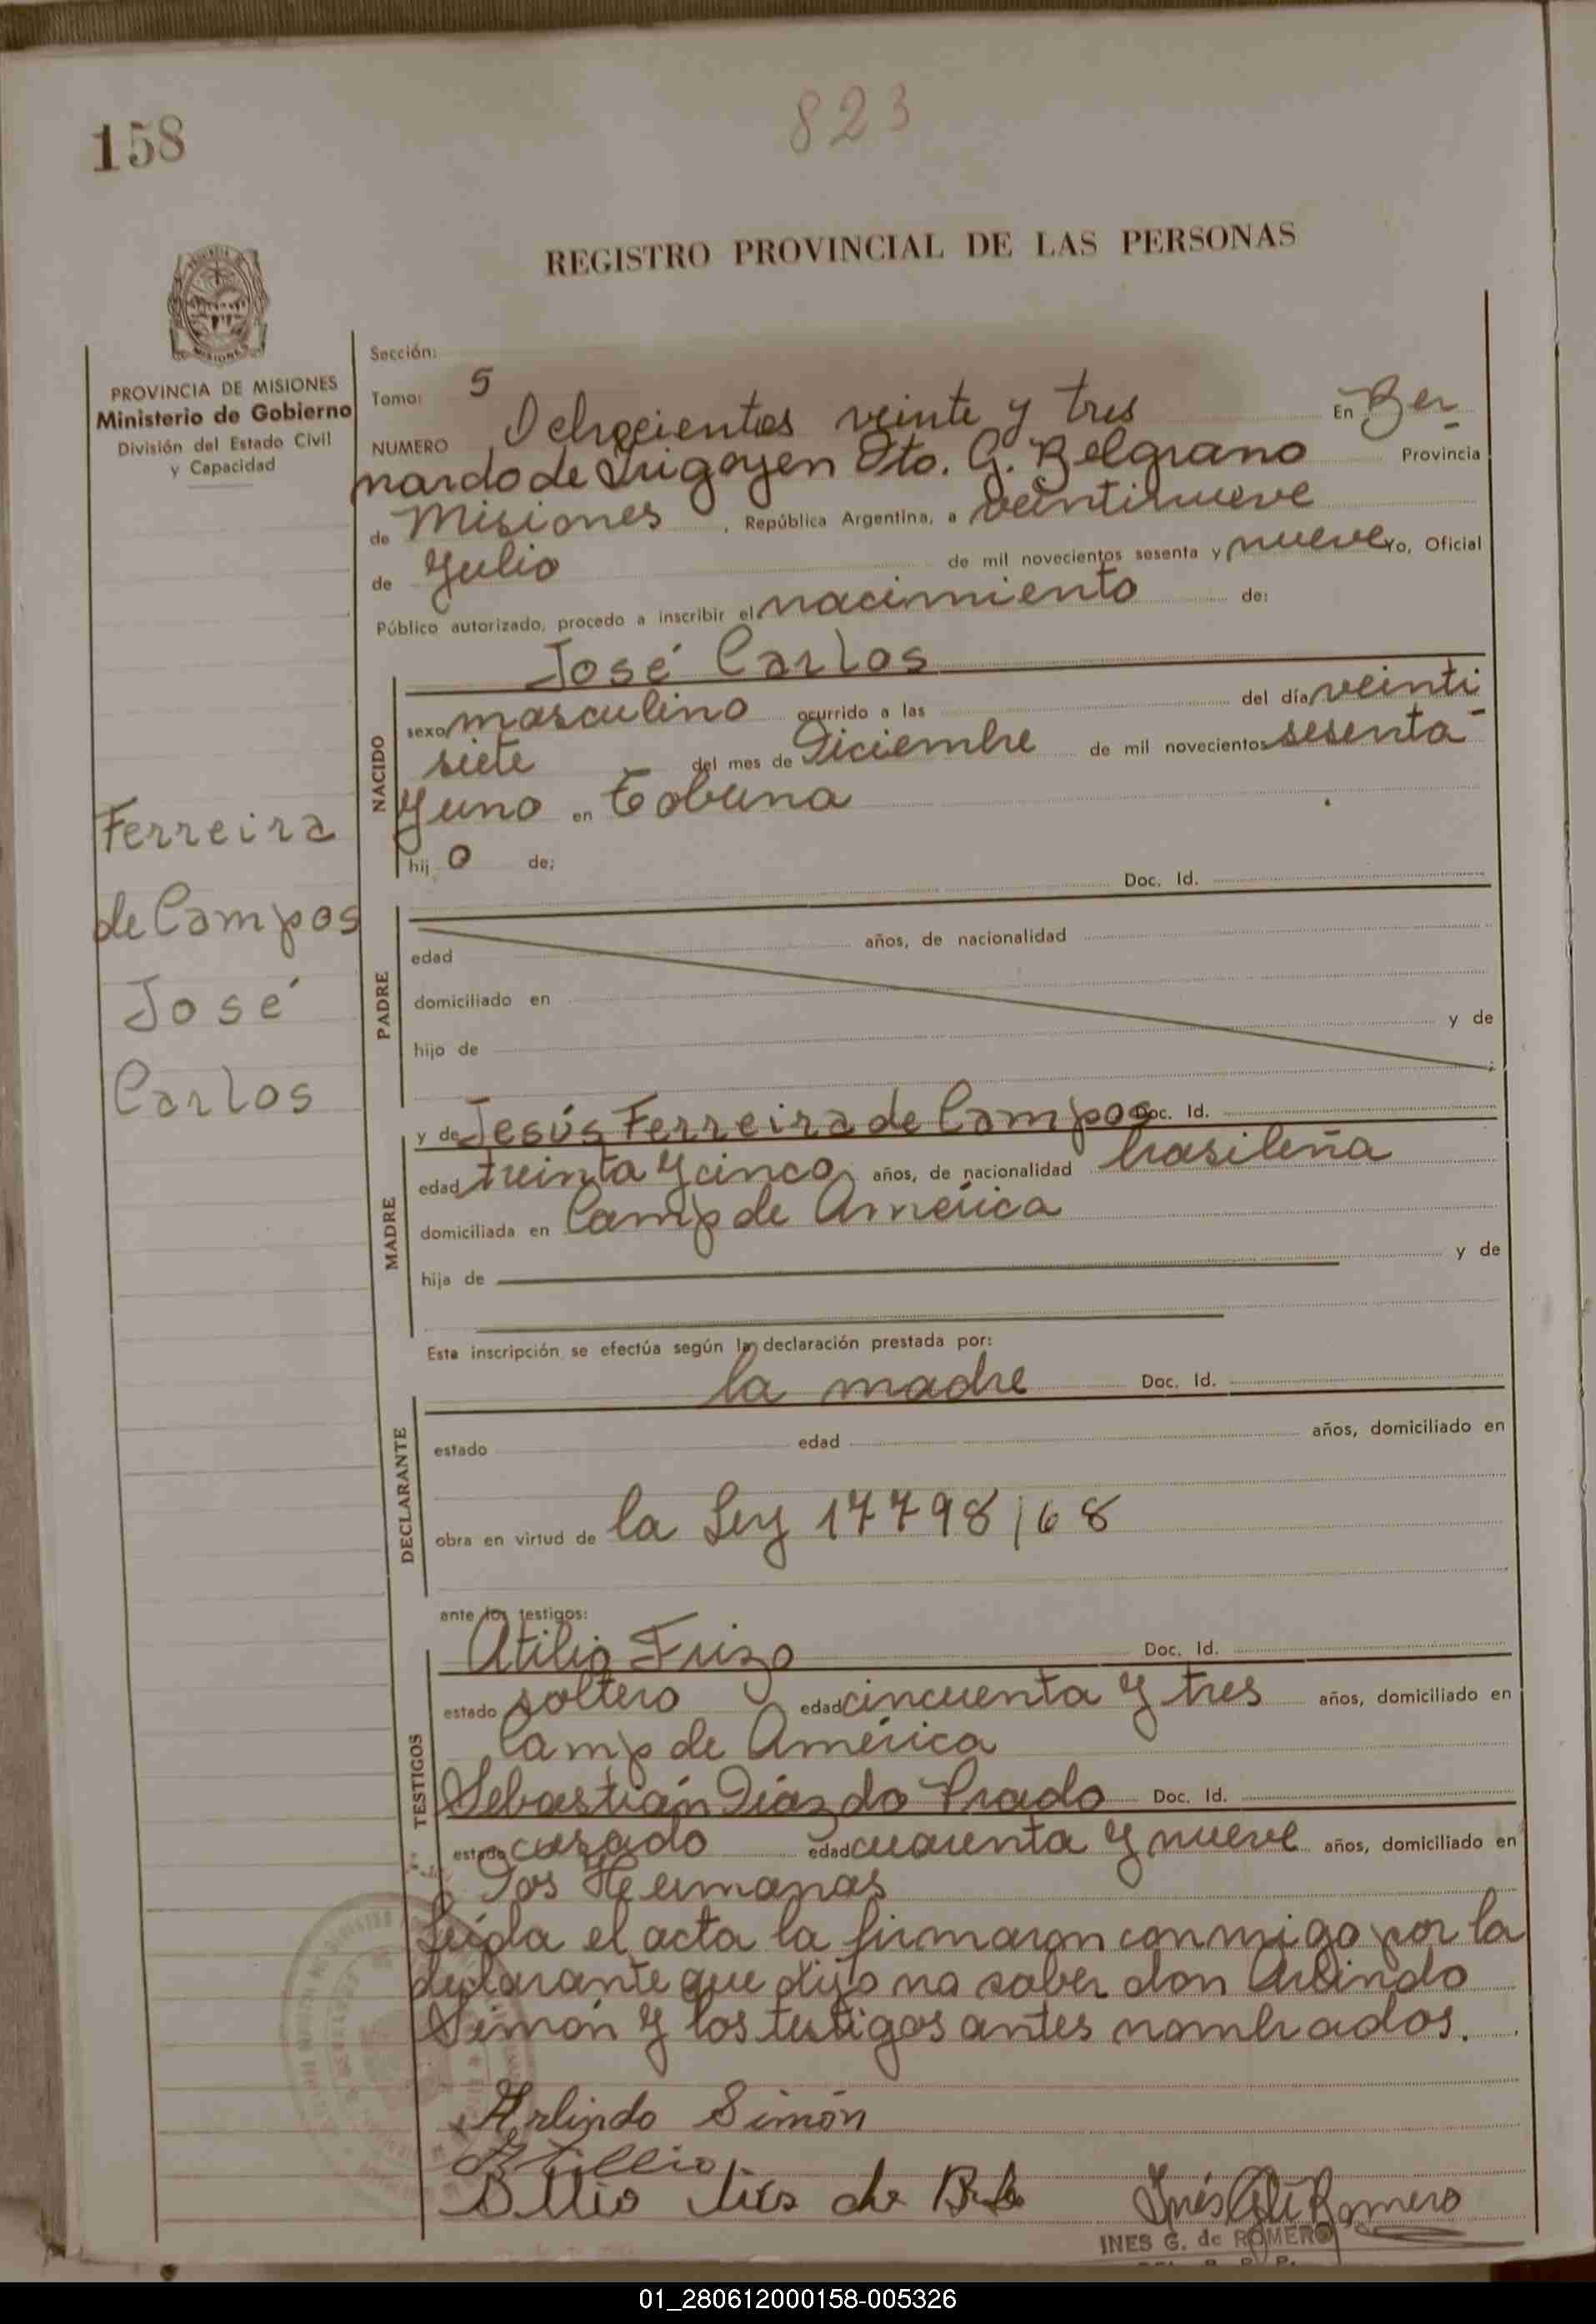 158
823
REGISTRO PROVINCIAL DE LAS PERSONAS
PROVINCIA DE MISIONES
Ministerio de Gobierno
División del Estado Civil
y Capacidad
Sección:
Tomo: 5
NUMERO Ochocientos veinte y tres En Ber
nardo de Irigoyen Dto. G. Belgrano Provincia
de Misiones, República Argentina, a veintinueve
de Julio de mil novecientos sesenta y nueve Yo, Oficial
Público autorizado, procedo a inscribir el nacimiento de:
José Carlos
NACIDO
sexo masculino ocurrido a las del día veinti
siete del mes de Diciembre de mil novecientos sesenta
y uno en Tobuna
hij o de:
Ferreira
de Campos
José
Carlos
Doc. Id.
PADRE
edad años, de nacionalidad
domiciliado en
hijo de y de
y de Jesús Ferreira de Campos Doc. Id.
MADRE
edad treinta y cinco años, de nacionalidad brasileña
domiciliada en Camp de América
hija de y de
Esta inscripción se efectúa según la declaración prestada por:
la madre Doc. Id.
DECLARANTE
estado edad años, domiciliado en
obra en virtud de la Ley 17798/68
ante los testigos:
Atilio Frizo Doc. Id.
TESTIGOS
estado soltero edad cincuenta y tres años, domiciliado en
Camp de América
Sebastián Diaz do Prado Doc. Id.
estado casado edad cuarenta y nueve años, domiciliado en
Dos Hermanas
Leída el acta la firmaron conmigo por la
declarante que dijo no saber don Arlindo
Simón y los testigos antes nombrados.
Arlindo Simón
Inés G. de Romero
INES G. de ROMERO
01_280612000158-005326